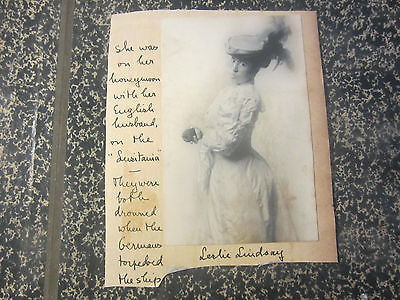 She was
on her
honeymoon
with her
English
husband,
on the
"Lusitania"
—
They were
both
drowned
when the
Germans
torpedoed
the ship
Leslie Lindsay